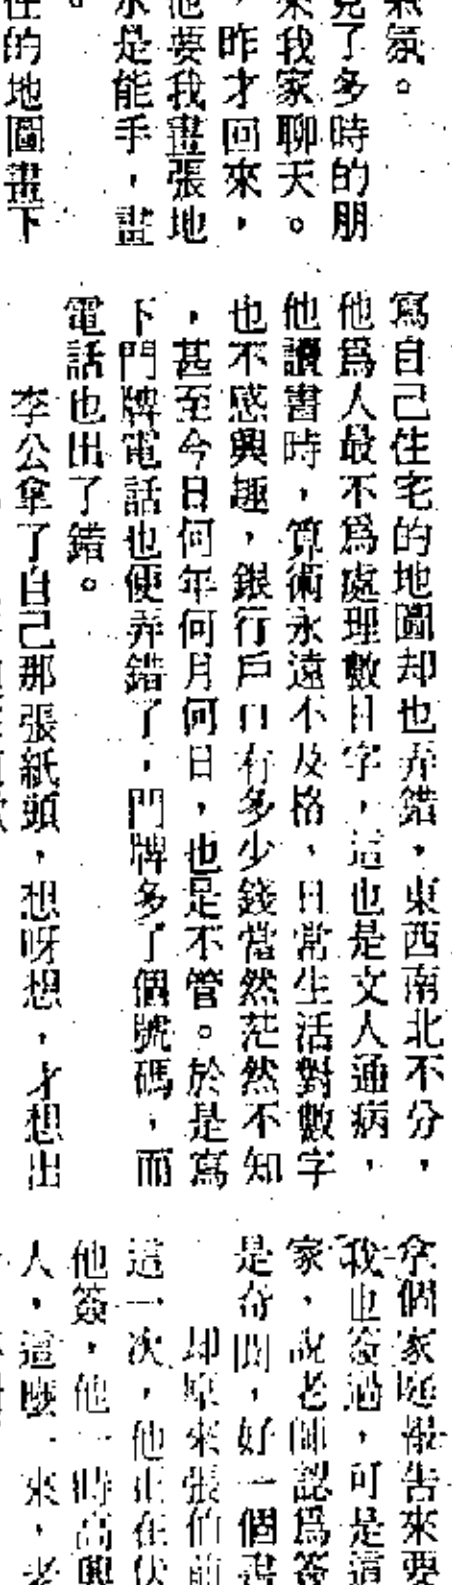 氣氛。
見了多時的朋
來我家聊天。
，昨才回來，
他要我畫張地
水是能手，畫
。
住的地圖畫下
寫自己住宅的地圖却也弄錯，東西南北不分，
他爲人最不爲處理數目字，這也是文人通病，
他讀書時，算術永遠不及格，日常生活對數字
也不感興趣，銀行戶口有多少錢當然茫然不知
，甚至今日何年何月何日，也是不管。於是寫
下門牌電話也便弄錯了，門牌多了個號碼，而
電話也出了錯。
李公拿了自己那張紙頭，想呀想，才想出
拿個家庭報告來要
我也簽過，可是這
家，說老師認爲簽
是奇聞，好一個尋
却原來張伯前
這一次，他正在伏
他簽，他一時高興
人，這麼一來，老